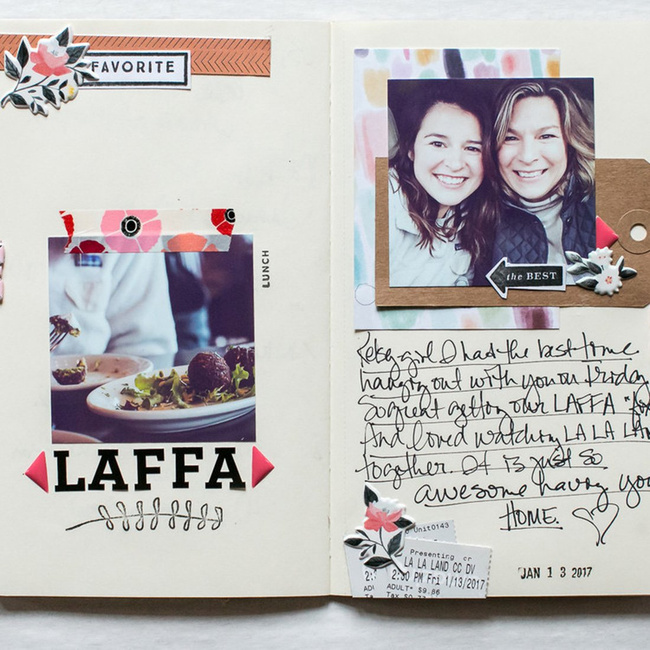 FAVORITE
LUNCH
LAFFA
the BEST
girl I had the best time
hanging out with you on Friday
So great getting our LAFFA
And loved watching LA LA
together. It is just so
awesome having you
HOME.
Unit0143
Presenting
LA LA LAND CC DV
2:30 PM Fri 1/13/2017
ADULT* $9.86
Tax
JAN 1 3 2017